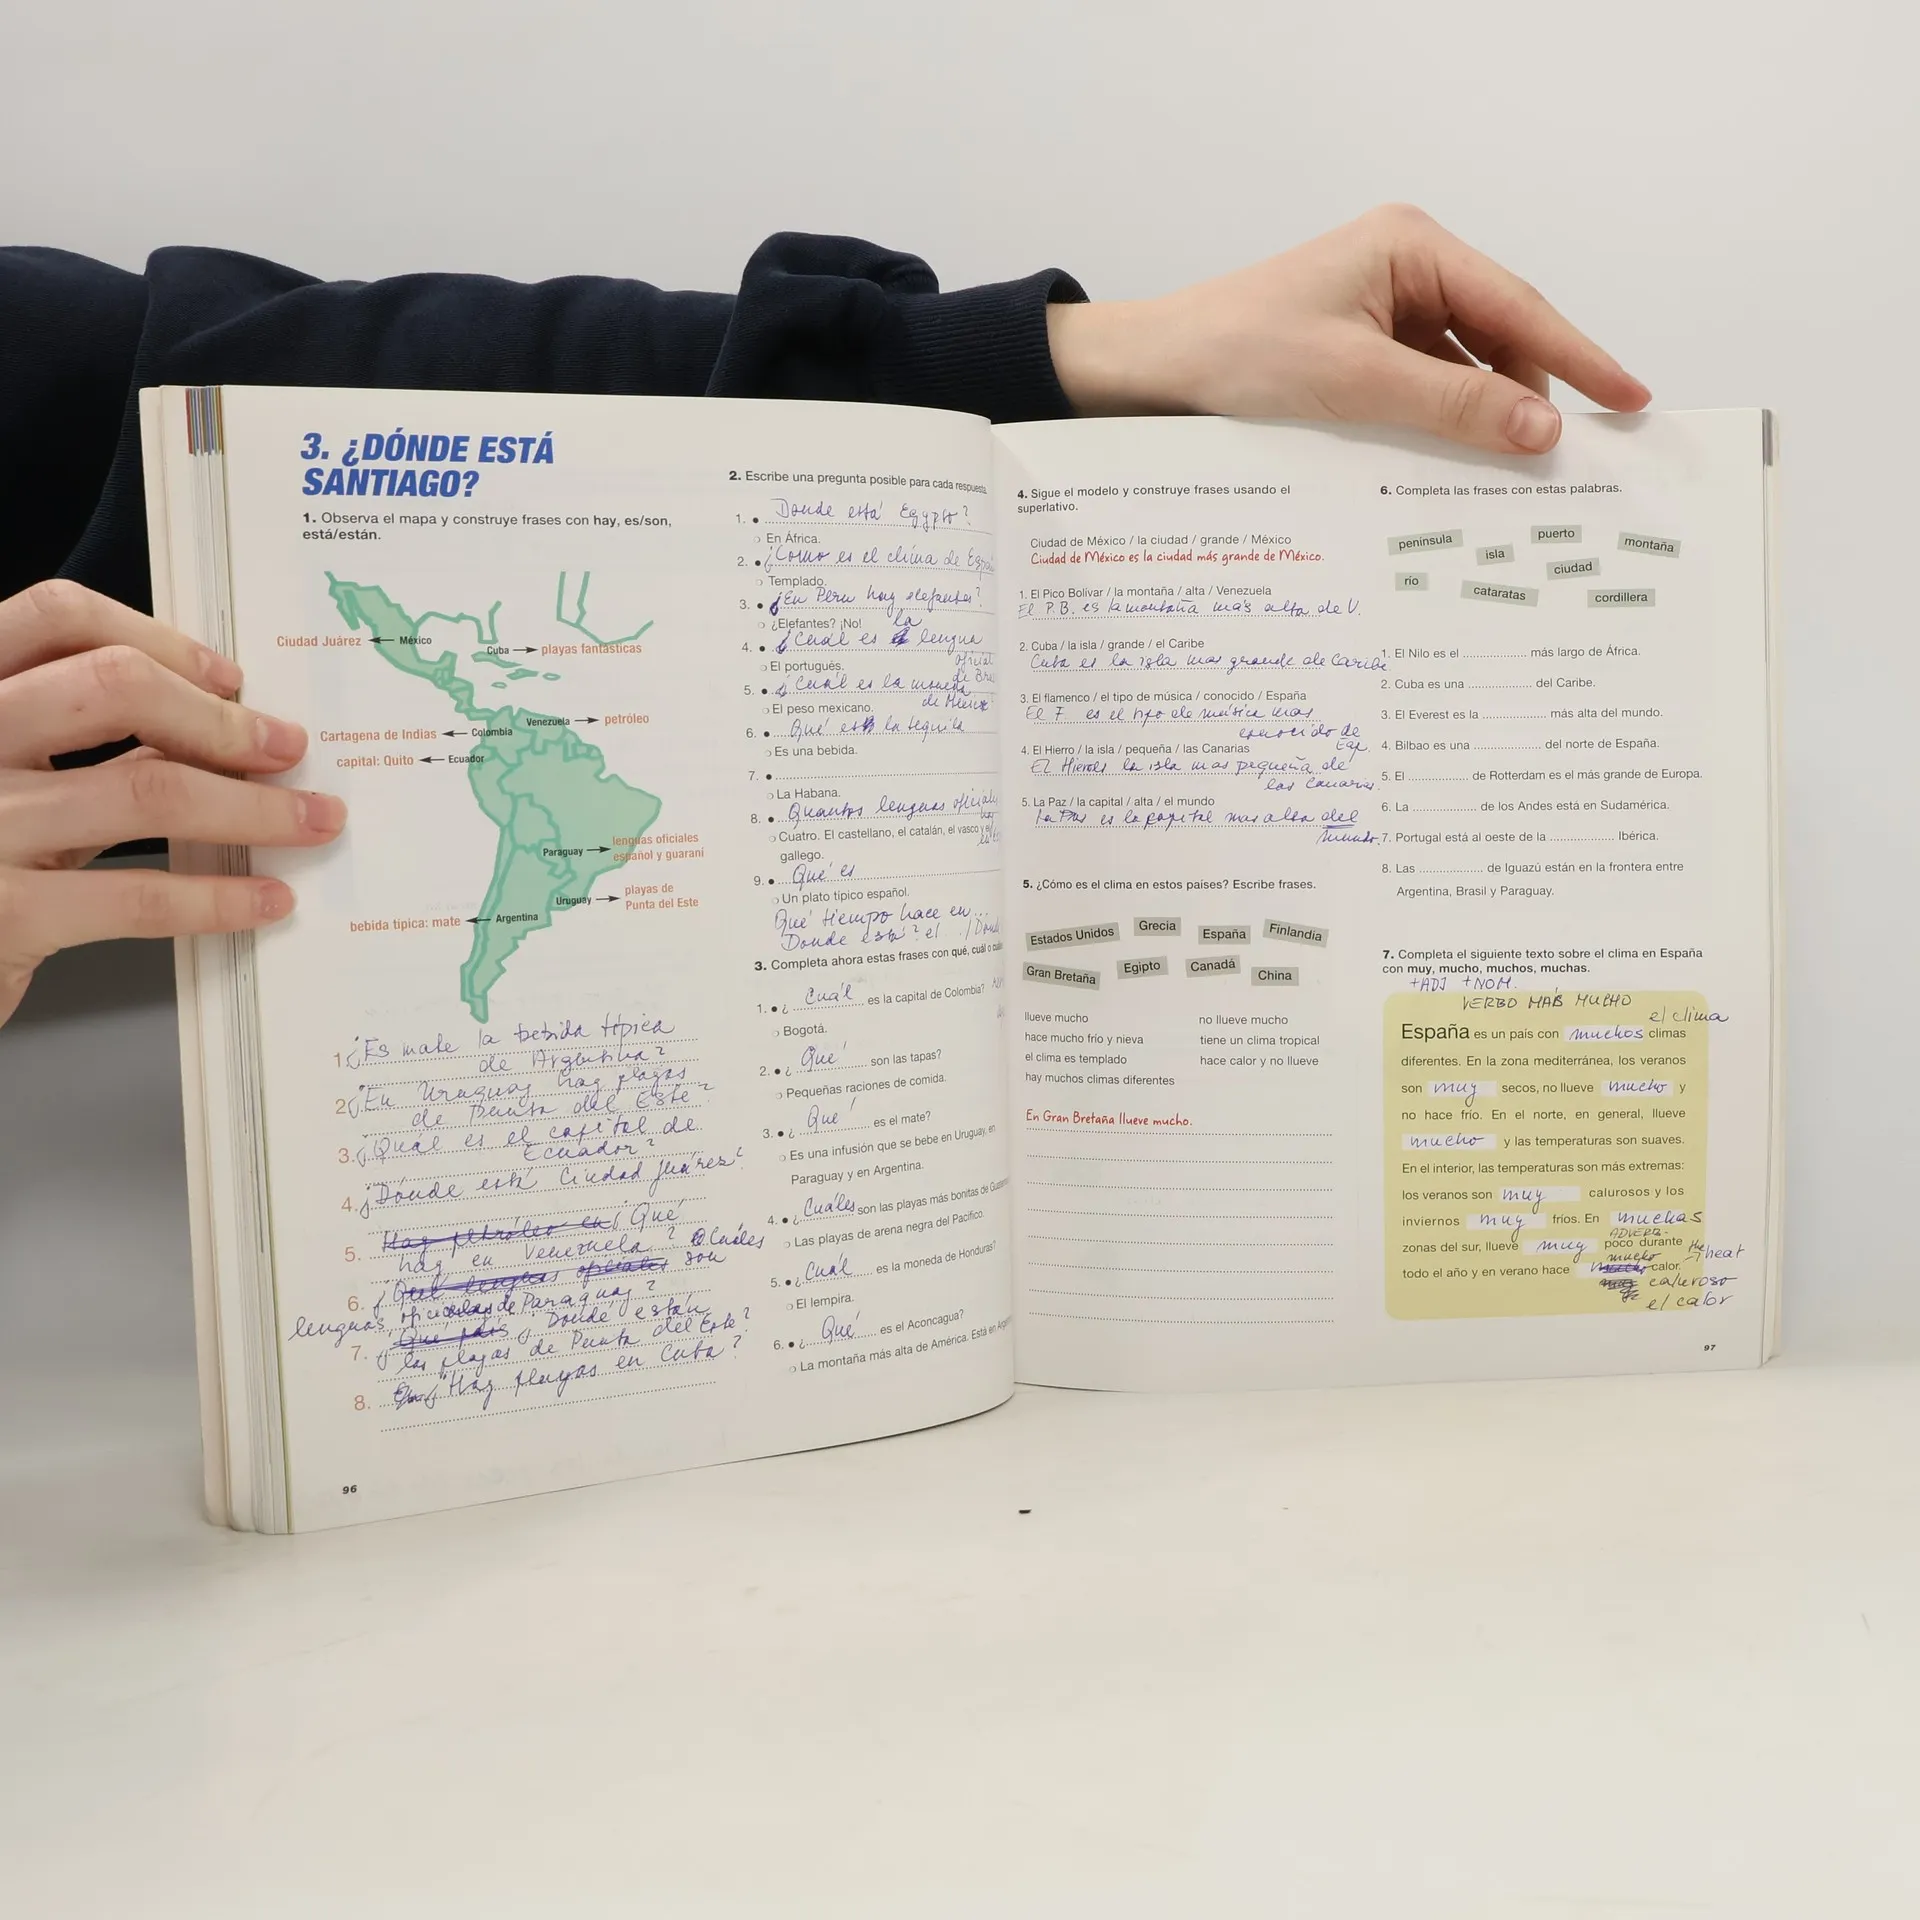 3. ¿DÓNDE ESTÁ
SANTIAGO?
1. Observa el mapa y construye frases con hay, es/son,
está/están.
Ciudad Juárez
México
Cuba
playas fantásticas
Venezuela
petróleo
Cartagena de Indias
Colombia
capital: Quito
Ecuador
Paraguay
lenguas oficiales
español y guaraní
Uruguay
playas de
Punta del Este
bebida típica: mate
Argentina
1. ¿Es mate la bebida típica
de Argentina?
2. ¿En Uruguay hay playas
de Punta del Este?
3. ¿Quál es el capital de
Ecuador?
4. ¿Dónde está Ciudad Juárez?
5. Hay petróleo en ¿Qué
hay en Venezuela? Cuáles
6. ¿Qué lenguas oficiales son
lenguas oficiales de Paraguay?
7. Qué país ¿Dónde están
las playas de Punta del Este?
8. ¿Hay playas en Cuba?
96
2. Escribe una pregunta posible para cada respuesta.
1. Donde está Egypto?
En África.
2. ¿Como es el clima de
Templado.
3. ¿En Peru hay elefantes?
¿Elefantes? ¡No!
la
4. ¿Cuál es lengua
oficial
El portugués.
de
5. ¿Cuál es la moneda
de
El peso mexicano.
6. Qué es la tequila
Es una bebida.
7.
La Habana.
8. Quantos lenguas
Cuatro. El castellano, el catalán, el vasco y el
gallego.
9. Qué es
Un plato típico español.
Qué tiempo hace en...
Donde está? el /
3. Completa ahora estas frases con qué, cuál o
1. ¿ Cuál es la capital de Colombia?
Bogotá.
2. ¿ Qué son las tapas?
Pequeñas raciones de comida.
3. ¿ Qué es el mate?
Es una infusión que se bebe en Uruguay, en
Paraguay y en Argentina.
4. ¿ Cuáles son las playas más bonitas de
Las playas de arena negra del Pacífico.
5. ¿ Cuál es la moneda de Honduras?
El lempira.
6. ¿ Qué es el Aconcagua?
La montaña más alta de América. Está en
4. Sigue el modelo y construye frases usando el
superlativo.
Ciudad de México / la ciudad / grande / México
Ciudad de México es la ciudad más grande de México.
1. El Pico Bolívar / la montaña / alta / Venezuela
El P.B. es la montaña más alta de V.
2. Cuba / la isla / grande / el Caribe
Cuba es la isla mas grande de Caribe
3. El flamenco / el tipo de música / conocido / España
El F. es el tipo de música mas
conocido de
Esp.
4. El Hierro / la isla / pequeña / las Canarias
la isla mas pequeña de
las Canarias.
5. La Paz / la capital / alta / el mundo
La Paz es la capital mas alta del
mundo.
5. ¿Cómo es el clima en estos países? Escribe frases.
Estados Unidos
Grecia
España
Finlandia
Gran Bretaña
Egipto
Canadá
China
llueve mucho
hace mucho frío y nieva
el clima es templado
hay muchos climas diferentes
no llueve mucho
tiene un clima tropical
hace calor y no llueve
En Gran Bretaña llueve mucho.
6. Completa las frases con estas palabras.
península
isla
puerto
montaña
río
cataratas
ciudad
cordillera
1. El Nilo es el .................. más largo de África.
2. Cuba es una .................. del Caribe.
3. El Everest es la .................. más alta del mundo.
4. Bilbao es una .................. del norte de España.
5. El .................. de Rotterdam es el más grande de Europa.
6. La .................. de los Andes está en Sudamérica.
7. Portugal está al oeste de la .................. Ibérica.
8. Las .................. de Iguazú están en la frontera entre
Argentina, Brasil y Paraguay.
7. Completa el siguiente texto sobre el clima en España
con muy, mucho, muchos, muchas.
+ADJ +NOM.
VERBO MAS MUCHO
el clima
España es un país con muchos climas
diferentes. En la zona mediterránea, los veranos
son muy secos, no llueve mucho y
no hace frío. En el norte, en general, llueve
mucho y las temperaturas son suaves.
En el interior, las temperaturas son más extremas:
los veranos son muy calurosos y los
inviernos muy fríos. En muchas
ADVERB.
zonas del sur, llueve muy poco durante
mucho
the heat
todo el año y en verano hace calor.
caluroso
el calor
97